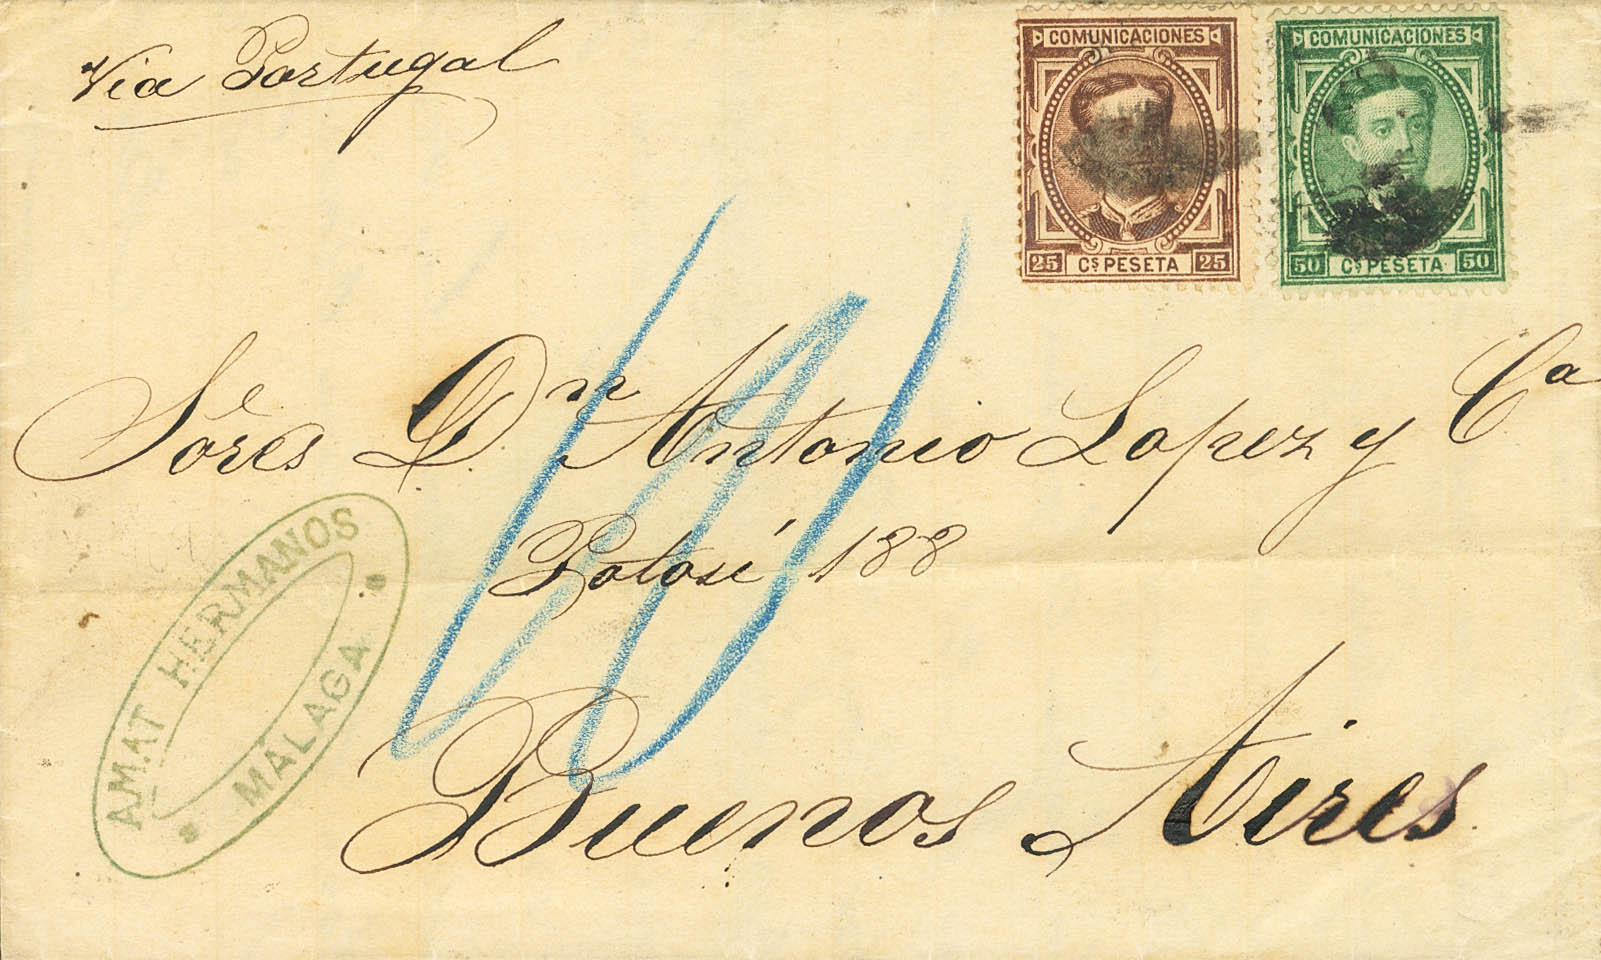 Via Portugal
COMUNICACIONES
25 Cs PESETA 25
COMUNICACIONES
50 Cs PESETA 50
Sores Dn Antonio Lopez y Ca
Potosí 188
Buenos Aires
AMAT HERMANOS
MÁLAGA